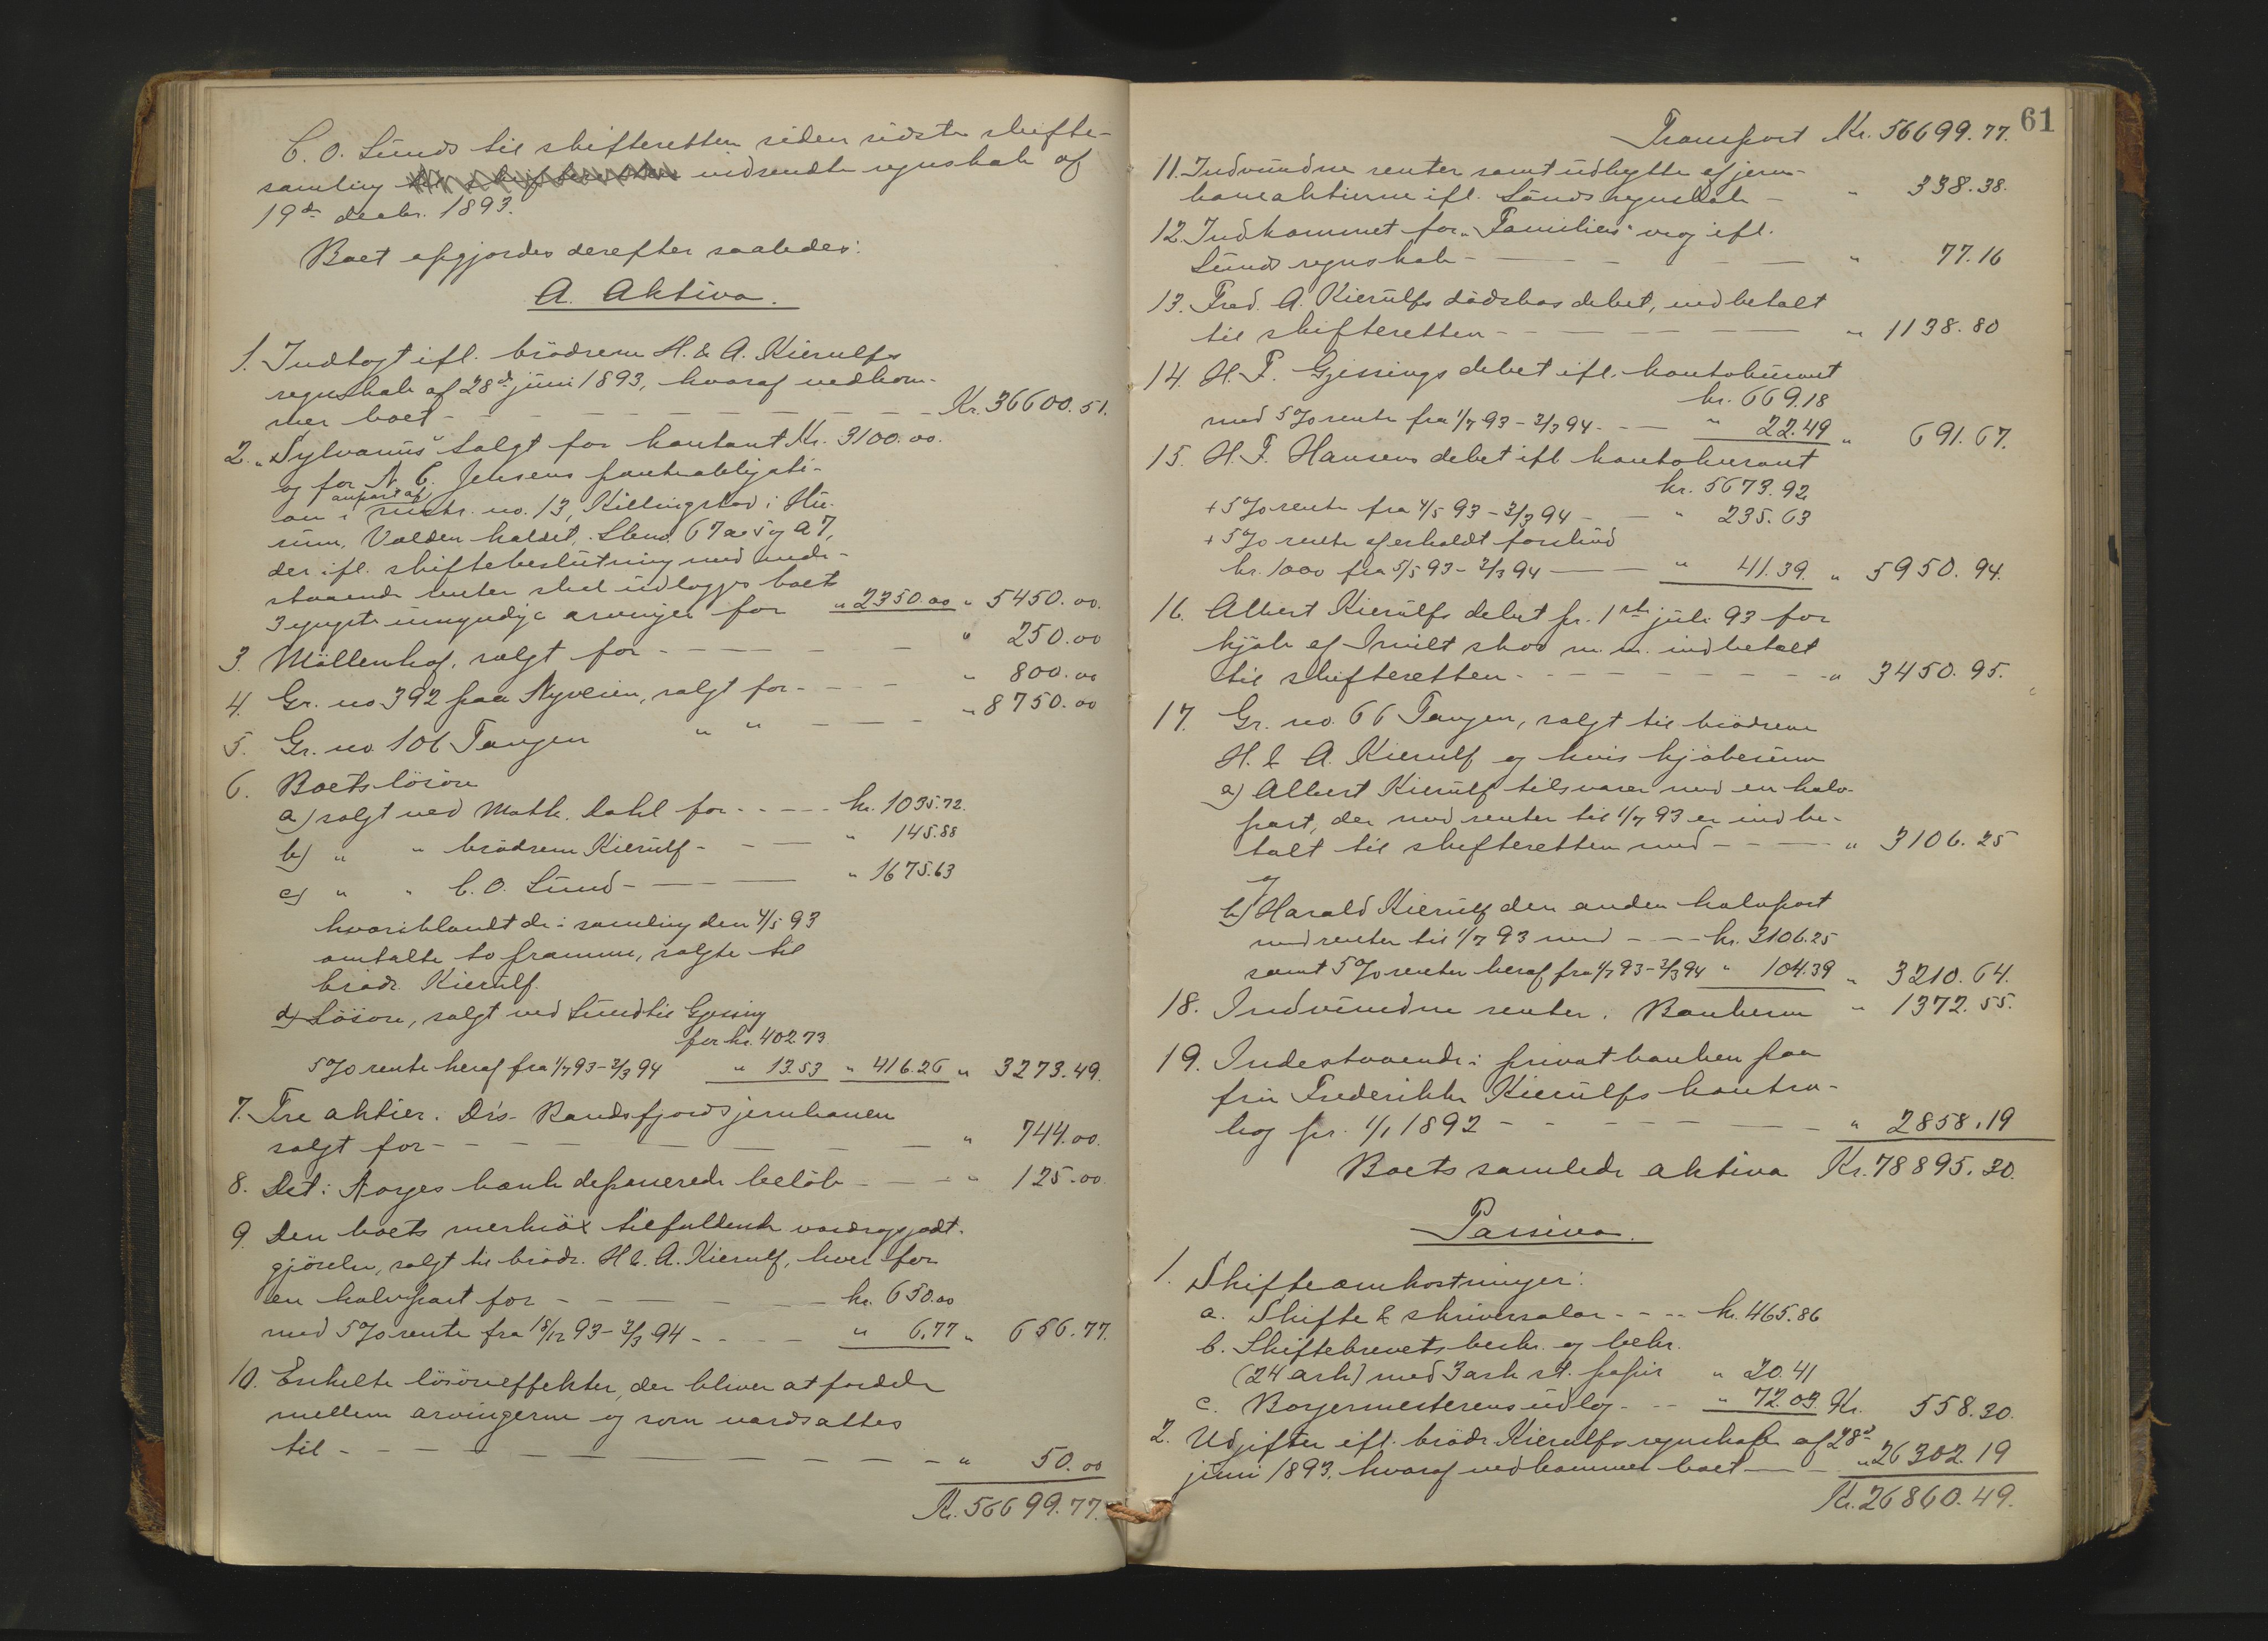 C. O. Lunds til skifteretten siden sidste skifte-
samling indsendte regnskab af
19de decbr. 1893.
Boet opgjordes derefter saaledes:
A. Aktiva.
1. Indtægt ifl. brödrene H. & A. Kierulfs
regnskab af 28de juni 1893, hvoraf vedkom-
mer boet - - - Kr. 36600.51.
2. „Sylvanus" solgt for kontant Kr. 3100.00.
og for N. C. Jensens panteobligati-
on i anpart af matr. no. 13, Killingstad i Hu-
rum, Volden kaldet, Sbno. 67 a5 og a7,
der ifl. skiftebeslutning med inde-
staaende renter skal udlægges boets
3 yngste umyndige arvinger for " 2350.00 " 5450.00.
3. Möllenhof, solgt for - - - " 250.00
4. Gr. no. 392 paa Nyveien, solgt for - - - " 800.00
5. Gr. no. 106 Tangen " " - - - " 8750.00
6. Boets lösöre
a) solgt ved Math. Dahl for - - - kr. 1035.72.
b) " " brödrene Kierulf - - - " 145.88
c) " " C. O. Lund - - - " 1675.63
hvoriblandt de i samling den 4/5 93
omtalte to pramme, solgte til
brödr. Kierulf.
d) Lösöre, solgt ved Lund til Gjessing
for kr. 402.73
5% rente heraf fra 1/7 93 - 2/3 94 " 13.53 " 416.26 " 3273.49.
7. Tre aktier i Drs-Randsfjords jernbanen
solgt for - - - " 744.00.
8. Det i Norges bank deponerede belöb - - - " 125.00.
9. Den boets merkiöx tilfaldende
gjörelse, solgt til brödr. H & A. Kierulf, hver for
en halvpart for - - - kr. 650.00
med 5% rente fra 15/12 93 - 2/3 94 - - - " 6.77 " 656.77.
10. Enkelte lösöreeffekter, der bliver at fordele
mellem arvingerne og som værdsattes
til - - - " 50.00
Kr. 56699.77.
61
Transport Kr. 56699.77.
11. Indvundne renter samt udbytte af jern-
baneaktierne ifl. Lunds regnskab - " 338.38.
12. Indkommet for „Familiens" vrag ifl.
Lunds regnskab - - - " 77.16
13. Fred. A. Kierulfs dödsbos debet, indbetalt
til skifteretten - - - " 1138.80
14. H. F. Gjessings debet ifl. kontokurant
kr. 669.18
med 5% rente fra 1/7 93 - 2/3 94 - - - " 22.49 " 691.67.
15. H. F. Hansens debet ifl. kontokurant
kr. 5673.92
+ 5% rente fra 4/5 93 - 2/3 94 - - " 235.63
+ 5% rente af erholdt forskud
kr. 1000 fra 5/5 93 - 2/3 94 - - " 41.39. " 5950.94.
16. Albert Kierulfs debet pr. 1ste juli 93 for
kjöb af skov m. m. indbetalt
til skifteretten - - - " 3450.95.
17. Gr. no. 66 Tangen, solgt til brödrene
H. & A. Kierulf og hvis kjöbesum
a) Albert Kierulf tilsvarer med en halv-
part, der med renter til 1/7 93 er indbe-
talt til skifteretten med - - - " 3106.25
og
b) Harald Kierulf den anden halvpart
med renter til 1/7 93 med - - - kr. 3106.25
samt 5% renter heraf fra 1/7 93 - 2/3 94 " 104.39 " 3210.64.
18. Indvundne renter i Bankerne " 1372.55.
19. Indestaaende i privatbanken paa
fru Frederikke Kierulfs kontra-
bog pr. 1/1 1892 - - - " 2858.19
Boets samlede aktiva Kr. 78895.30.
Passiva.
1. Skifteomkostninger:
a. Skifte & skriversalær - - - kr. 465.86
b. Skiftebrevets beskr. og bekr.
(24 ark) med 3 ark st. papir " 20.41
c. Borgermesterens udlæg - - " 72.03 Kr. 558.30.
2. Udgifter ifl. brödr. Kierulfs regnskab af 28de
juni 1893, hvoraf vedkommer boet - - " 26302.19
Kr. 26860.49.